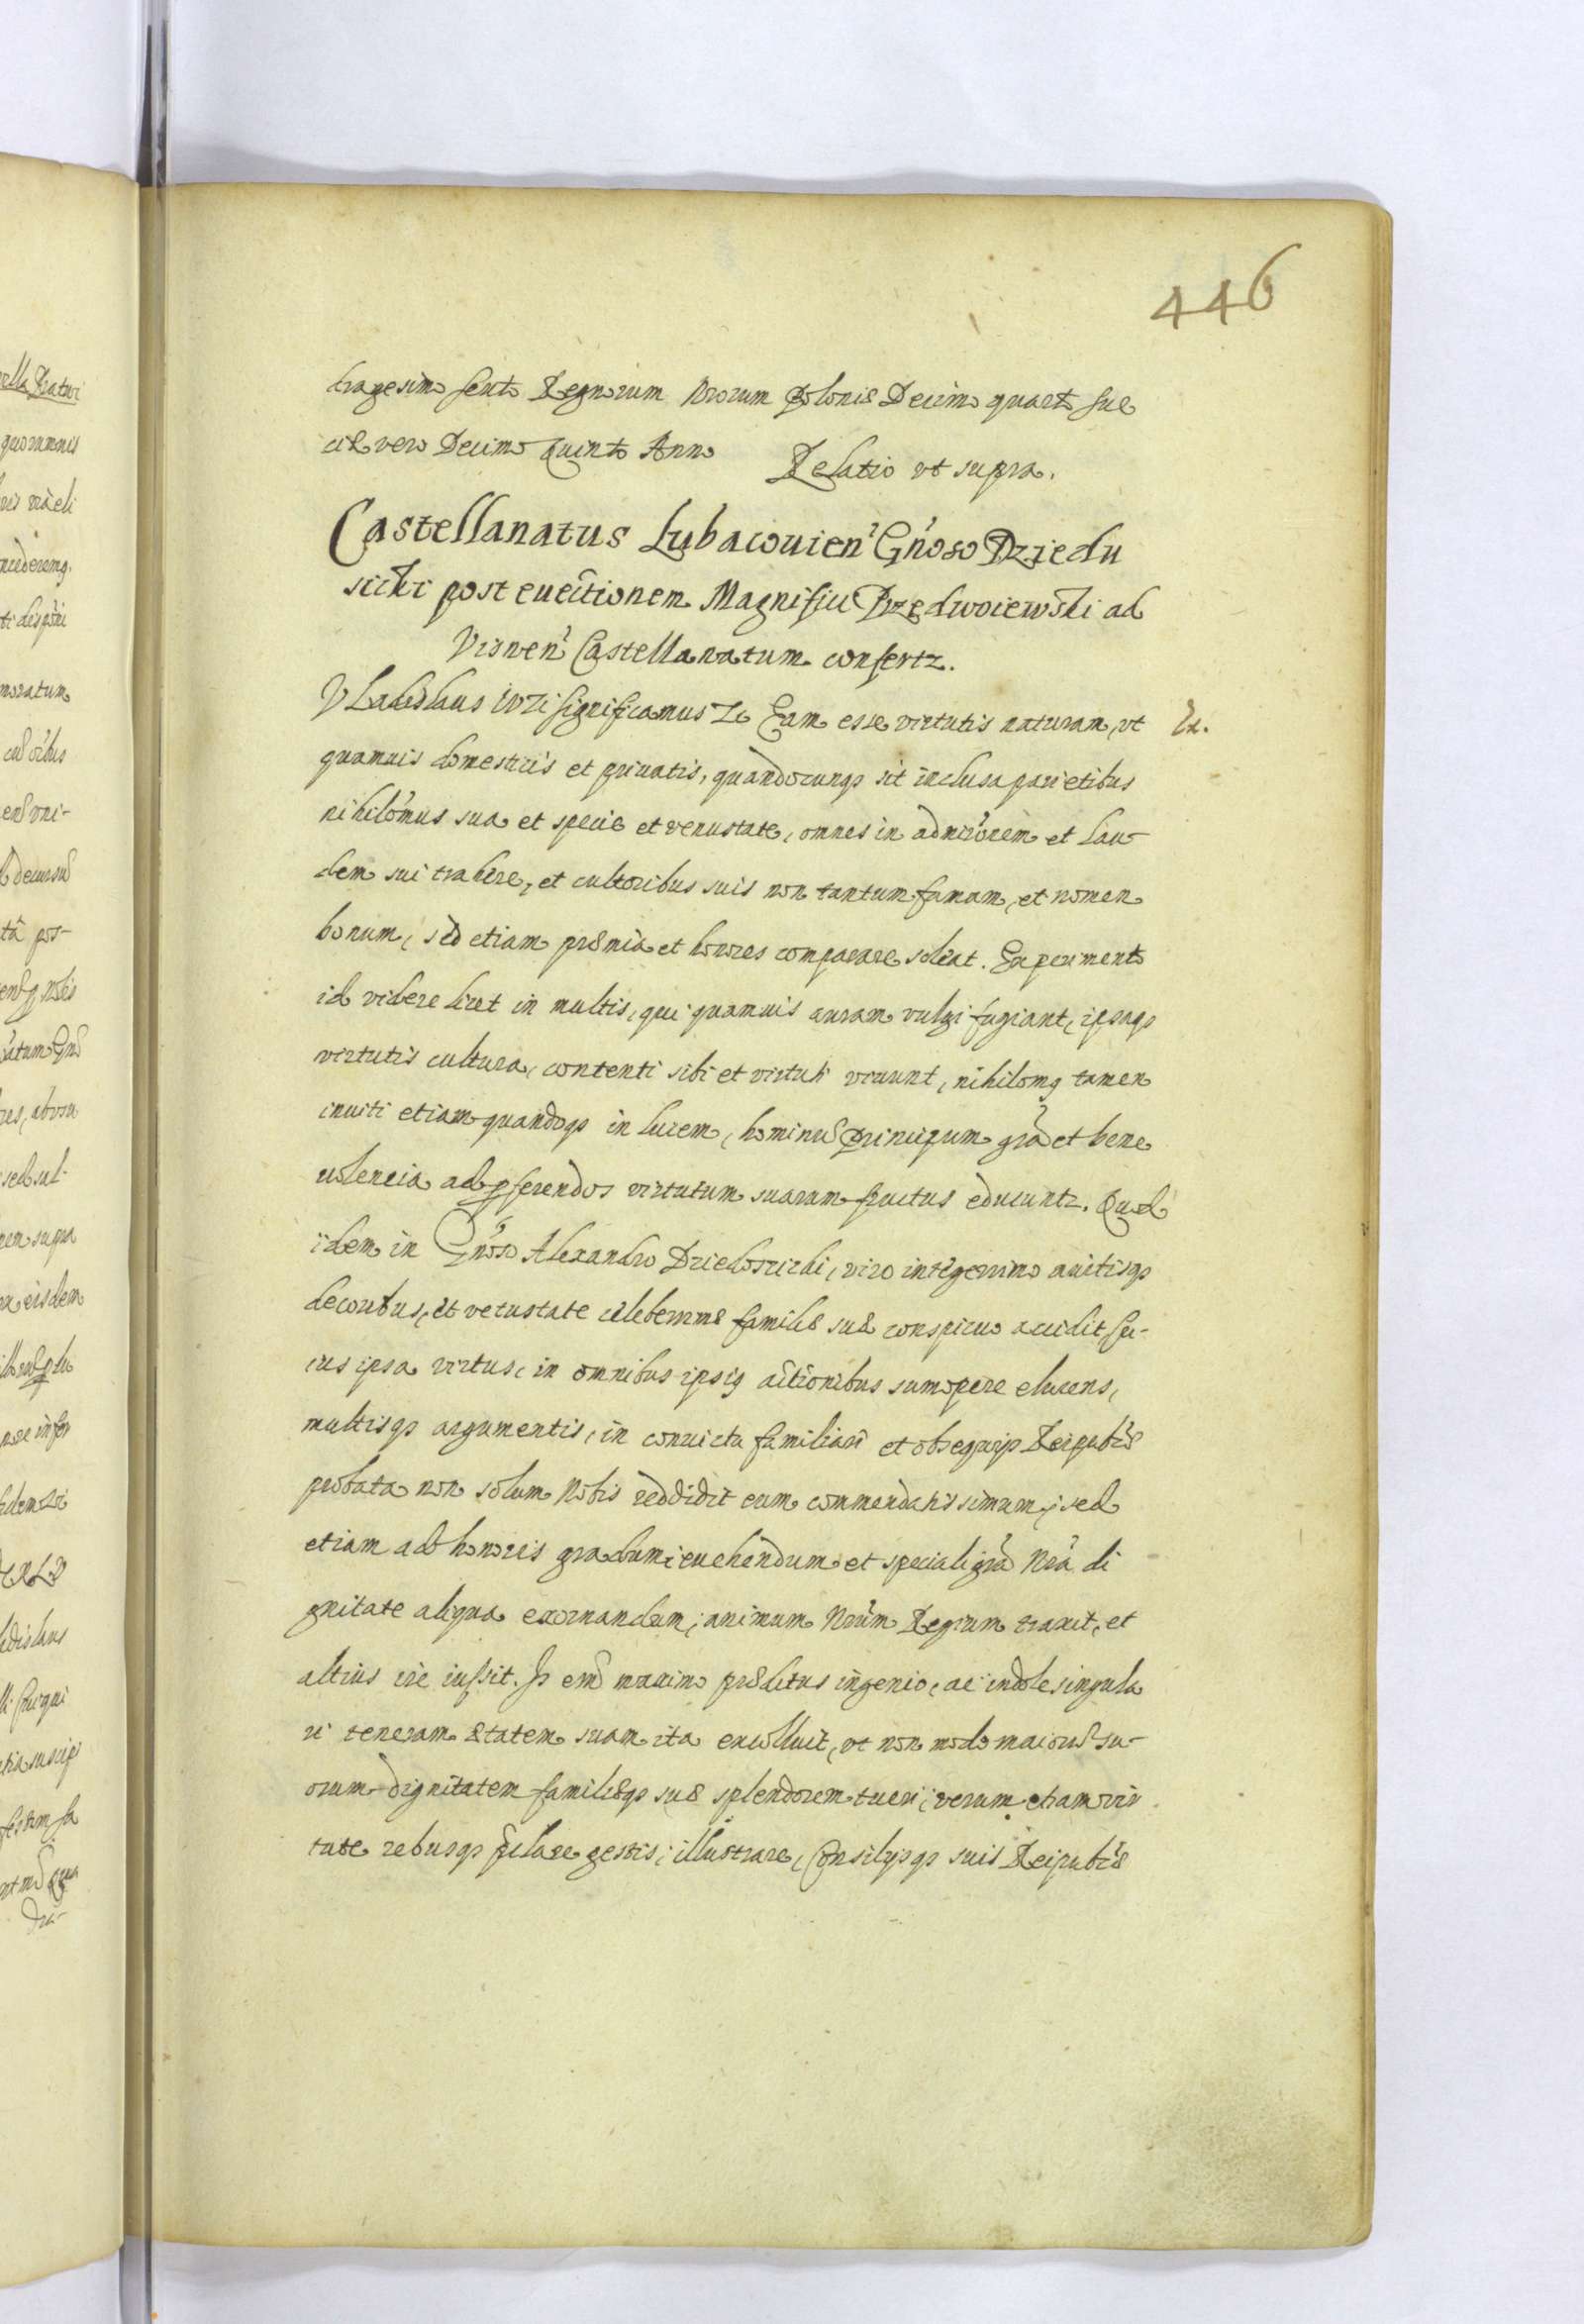 446
tragesimo sexto Regnorum Nrorum Poloniæ Decimo quarto Sue
ciæ vero Decimo Quinto Anno Relatio vt supra.
Castellanatus Lubacouien Gnoso Dziedu
sicki post euectionem Magnifici Przedwoiewski ad
Visnen Castellanatum confertr.
Vladislaus IV Significamus Eam esse virtutis naturam, vt Ex.
quamuis domesticis et priuatis, quandocunq sit inclusa parietibus
nihilomus sua et specie et venustate, omnes in admirõnem et lau-
dem sui trahere, et cultoribus suis non tantum famam, et nomen
bonum, sed etiam præmia et honores comparare soleat. Experimento
id videre licet in multis, qui quamuis auram vulgi fugiant, ipsaq
virtutis cultura, contenti sibi et virtuti viuunt, nihilomq tamen
inuiti etiam quandoq in lucem, hominũ Principum grã et bene
uolencia ad pferendos virtutum suarum fructus educuntr. Quod
idem in Gnoso Alexandro Dziedoszicki, viro integerrimo auitisq
decoribus, et vetustate celeberrimæ familiæ suæ conspicuo accidit Cu-
ius ipsa virtus, in omnibus ipsig actionibus sumopere elucens,
multisq argumentis, in conuictu familiari et obsequijs Reipublicæ
probata non solum Nobis reddidit eum commendatissimum, sed
etiam ad honoris gradum, euehendum et speciali grã Nrã di
gnitate aliqua exornandum, animum Nrũm Regium traxit, et
altius ire iussit. Is em maximo præditus ingenio, ac indole singula
ri teneram ætatem suam ita excolluit, vt non modo maiorũ su-
orum dignitatem familiæq suæ splendorem tueri, verum etiam vir
tute rebusq pclare gestis, illustrare, Consilijsq suis Reipublicæ